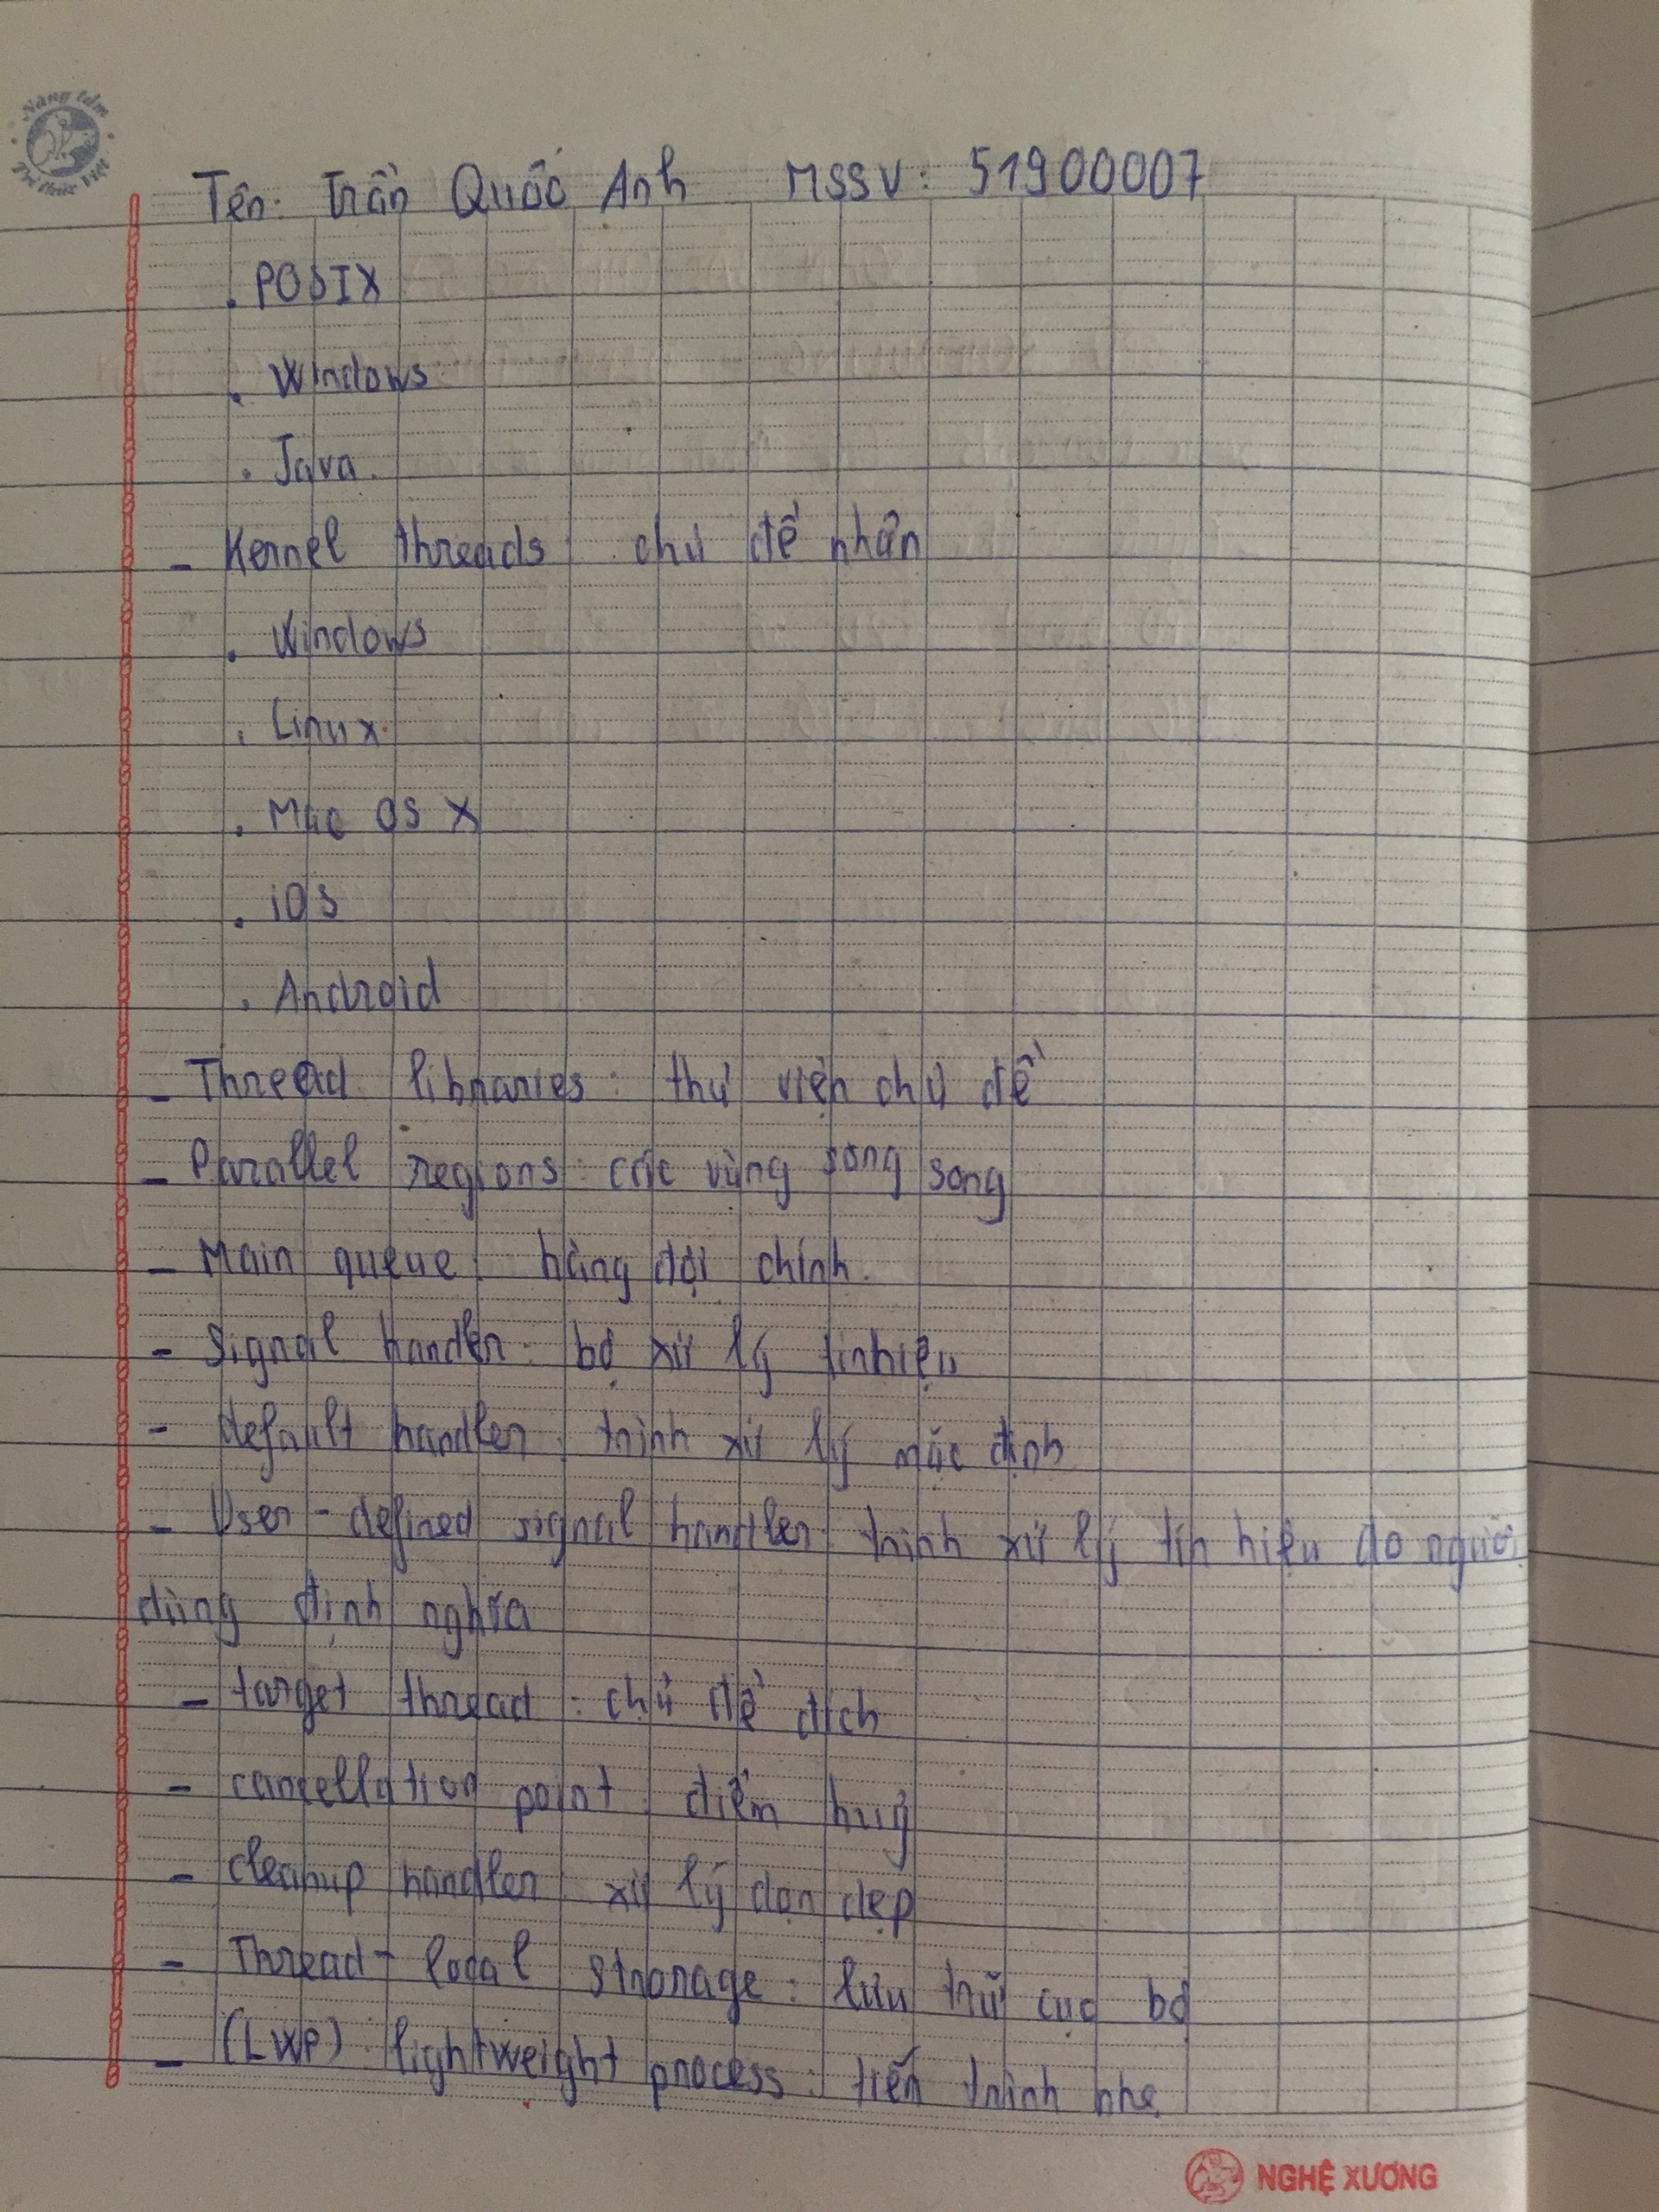 Nâng tầm
Tri thức Việt
Tên: Trần Quốc Anh MSSV: 51900007
. POSIX
. Windows
. Java.
- Kernel threads: chủ đề nhân
. Windows
. Linux.
. Mac OS X
. iOS
. Android
- Thread libraries: thư viện chủ đề
- Parallel regions: các vùng song song
- Main queue: hàng đợi chính.
- Signal handler: bộ xử lý tín hiệu
- default handler: trình xử lý mặc định
- User-defined signal handler: trình xử lý tín hiệu do người
dùng định nghĩa
- target thread: chủ đề đích
- cancellation point: điểm huỷ
- cleanup handler: xử lý dọn dẹp
- Thread-local strorage: lưu trữ cục bộ
- (LWP) lightweight process: tiến trình nhẹ
NGHỆ XƯƠNG